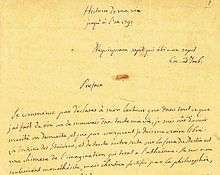 Histoire de ma vie
jusqu'à l'an 1797
Nequicquam sapit qui sibi non sapit
Cic. ad Treb.
Preface
Je commence par declarer à mon lecteur que dans tout ce que
j'ai fait de bon ou de mauvais dans toute ma vie, je suis sûr d'avoir
merité ou demerité, et que par consequent je dois me croire libre.
La doctrine des Stoiciens, et de toute autre secte sur la force du Destin est
une chimere de l'imagination qui tient à l'atheisme. Je suis non
seulement monotheiste, mais chretien fortifié par la philosophie,